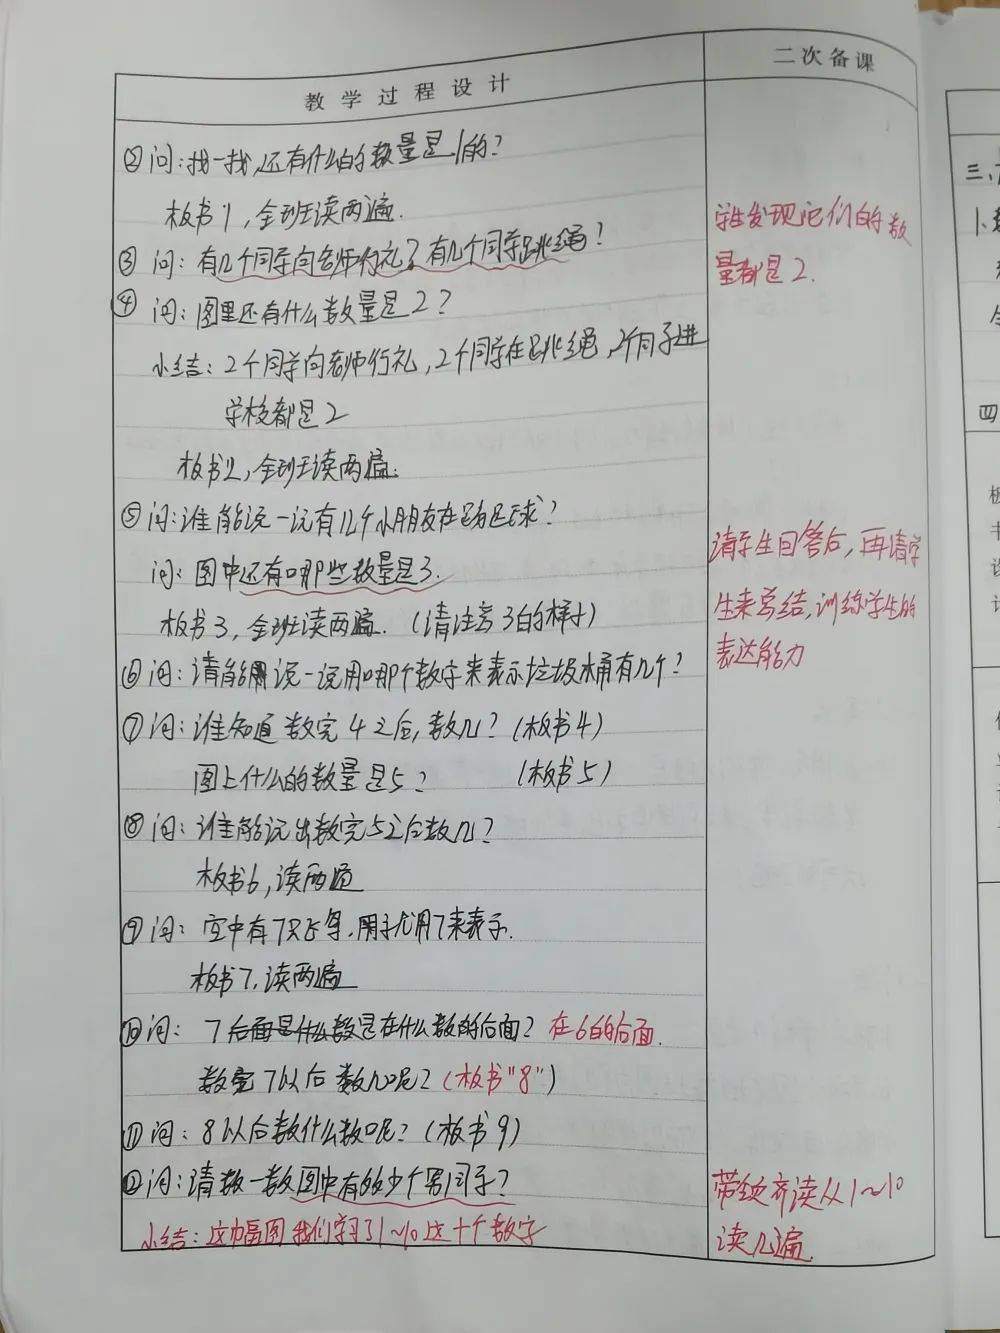 教学过程设计
二次备课
②问:找一找,还有什么的数量是1的?
板书1,全班读两遍.
③问:有几个同学向老师行礼?有几个同学跳绳?
④问:图里还有什么数量是2?
小结:2个同学向老师行礼,2个同学在跳绳,2个同学进
学校都是2
板书2,全班读两遍.
⑤问:谁能说一说有几个小朋友在踢足球?
问:图中还有哪些数量是3.
板书3,全班读两遍.(请注意3的样子)
⑥问:请能用说一说用哪个数字来表示垃圾桶有几个?
⑦问:谁知道数完4之后,数几?(板书4)
图上什么的数量是5?(板书5)
⑧问:谁能说出数完5之后数几?
板书6,读两遍
⑨问:空中有7只鸟.用7来表示.
板书7,读两遍
⑩问:7后面是什么数是在什么数的后面?在6的后面.
数完7以后数几呢?(板书"8")
⑪问:8以后数什么数呢?(板书9)
⑫问:请数一数图中有多少个男同学?
小结:这幅图我们学习了1~10这十个数字
学生发现它们的数
量都是2.
请学生回答后,再请学
生来总结,训练学生的
表达能力
带领齐读从1~10
读几遍.
三、
1.
四
板
书
设
计